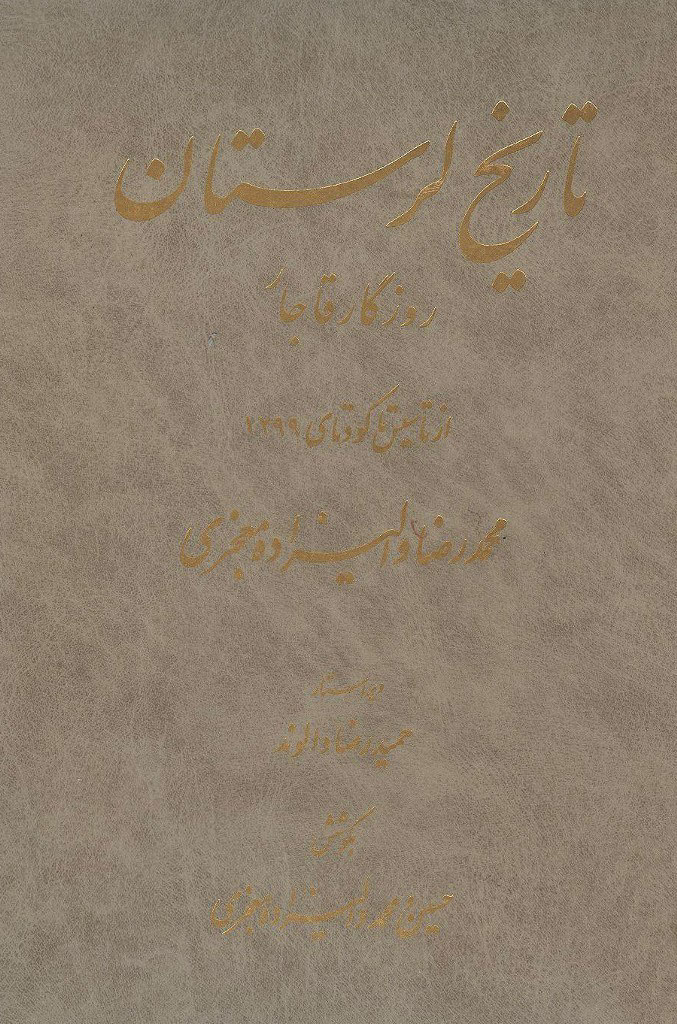 تاریخ لرستان
روزگار قاجار
از تأسیس تا کودتای ۱۲۹۹
محمدرضا والیزاده معجزی
ویراستار
حمیدرضا دالوند
بکوشش
حسین و محمد والیزاده معجزی